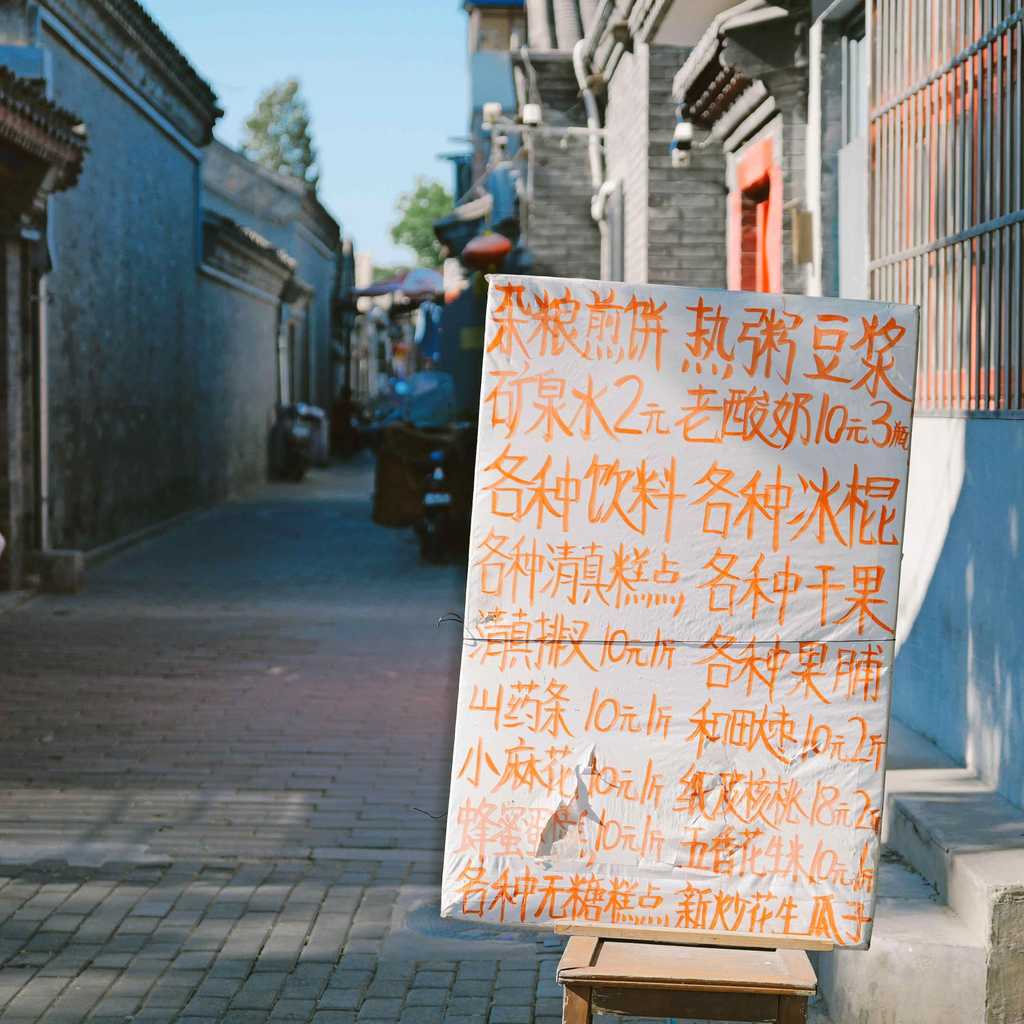 杂粮煎饼 热粥豆浆
矿泉水2元 老酸奶10元3瓶
各种饮料 各种冰棍
各种清真糕点 各种干果
清真排叉10元1斤 各种果脯
山药条10元1斤 和田大枣10元2斤
小麻花10元1斤 纸皮核桃18元2斤
蜂蜜10元1斤 五香花生米10元1斤
各种无糖糕点 新炒花生瓜子